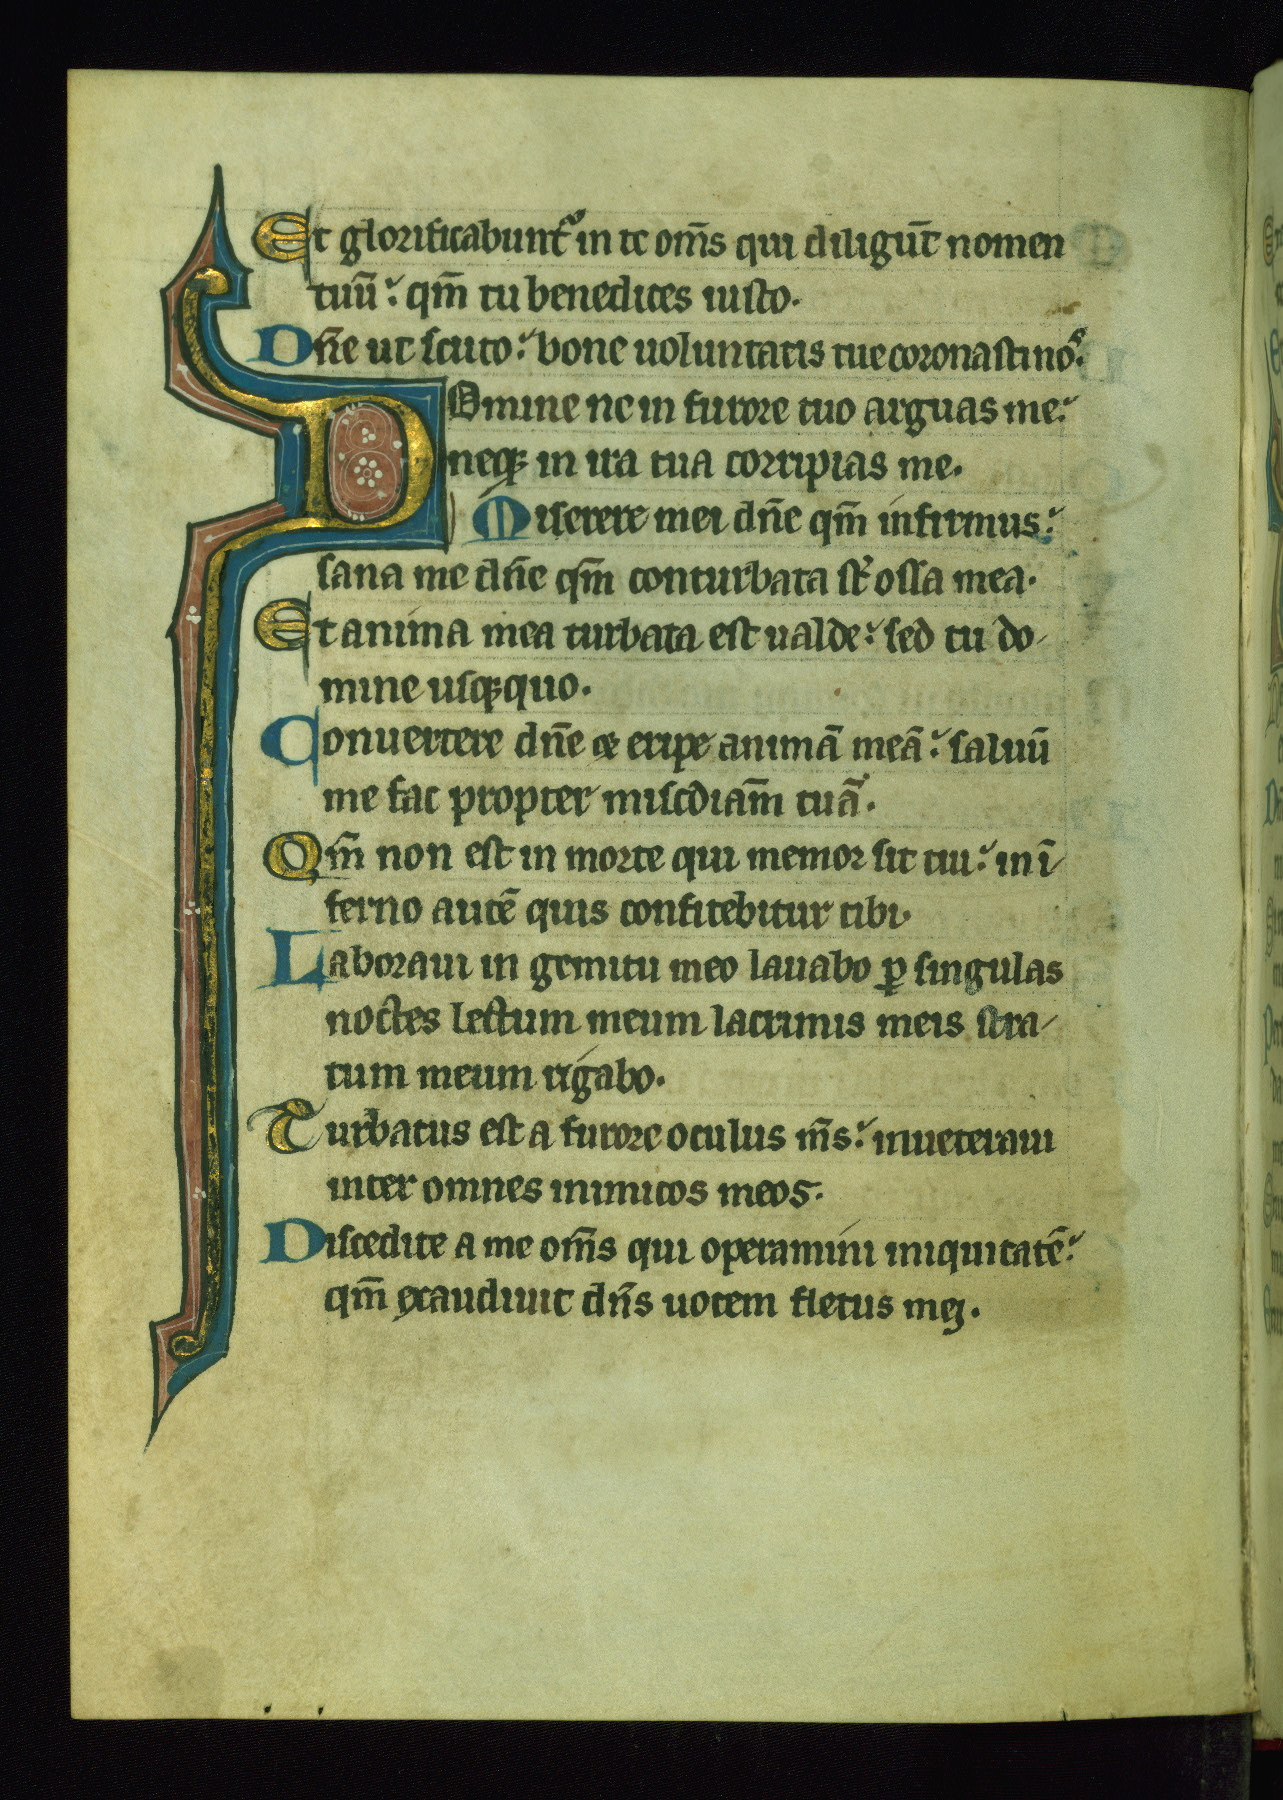 Et glorificabunt᷑ in te om̄s qui diligūt nomen
tuū: qm̄ tu benedices iusto.
Dn̄e ut scuto: bone uoluntatis tue coronasti noꝰ.
Domine ne in furore tuo arguas me:
neqꝫ in ira tua corripias me.
Miserere mei dn̄e qm̄ infirmus:
sana me dn̄e qm̄ conturbata st̄ ossa mea.
Et anima mea turbata est ualde: sed tu do
mine usqꝫquo.
Conuertere dn̄e ⁊ eripe animā meā: saluū
me fac propter miscd̄iam̄ tuā.
Qm̄ non est in morte qui memor sit tui: in ī
ferno autē quis confitebitur tibi.
Laboraui in gemitu meo lauabo ꝑ singulas
noctes lectum meum lacrimis meis stra
tum meum rigabo.
Turbatus est a furore oculus m̄s: inueteraui
inter omnes inimicos meos.
Discedite a me om̄s qui operamini iniquitatē:
qm̄ exaudiuit dn̄s uocem fletus mei.